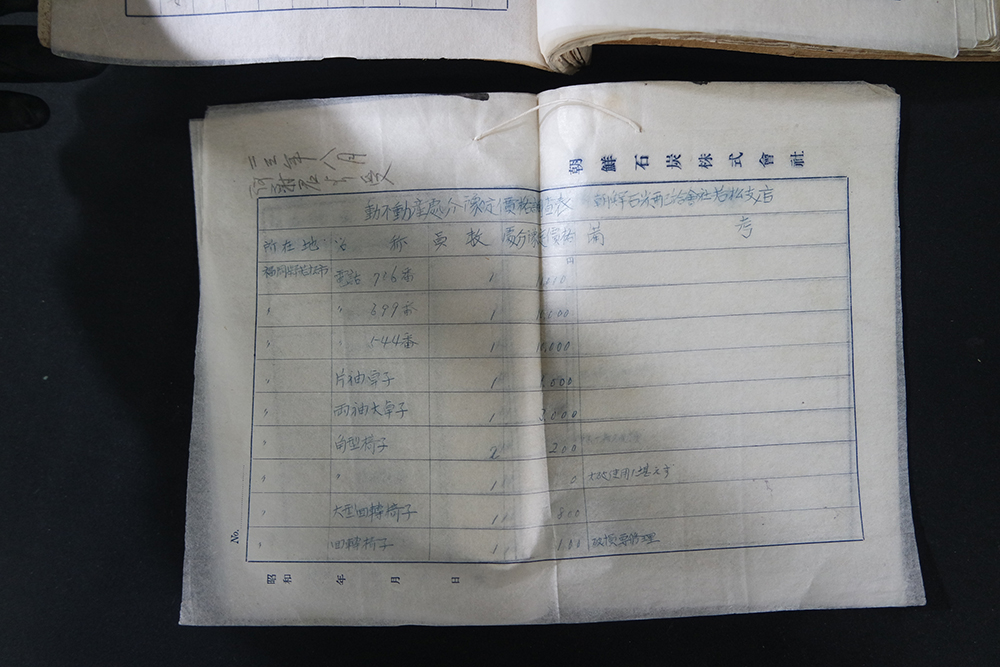 朝鮮石炭株式會社
二三年八月
動不動産處分予定價格調査表 朝鮮石炭株式會社若松支店
所在地 名 称 員数 處分予定價格 備 考
福岡縣若松市 電話 716番 1
〃 〃 399番 1 10,000
〃 〃 544番 1 10,000
〃 片袖卓子 1 1,000
〃 両袖大卓子 1 3,000
〃 角型椅子 2 200
〃 〃 1 0 大破使用ニ堪えず
〃 大型回轉椅子 1 800
〃 回轉椅子 1 100 破損要修理
No.
昭和 年 月 日